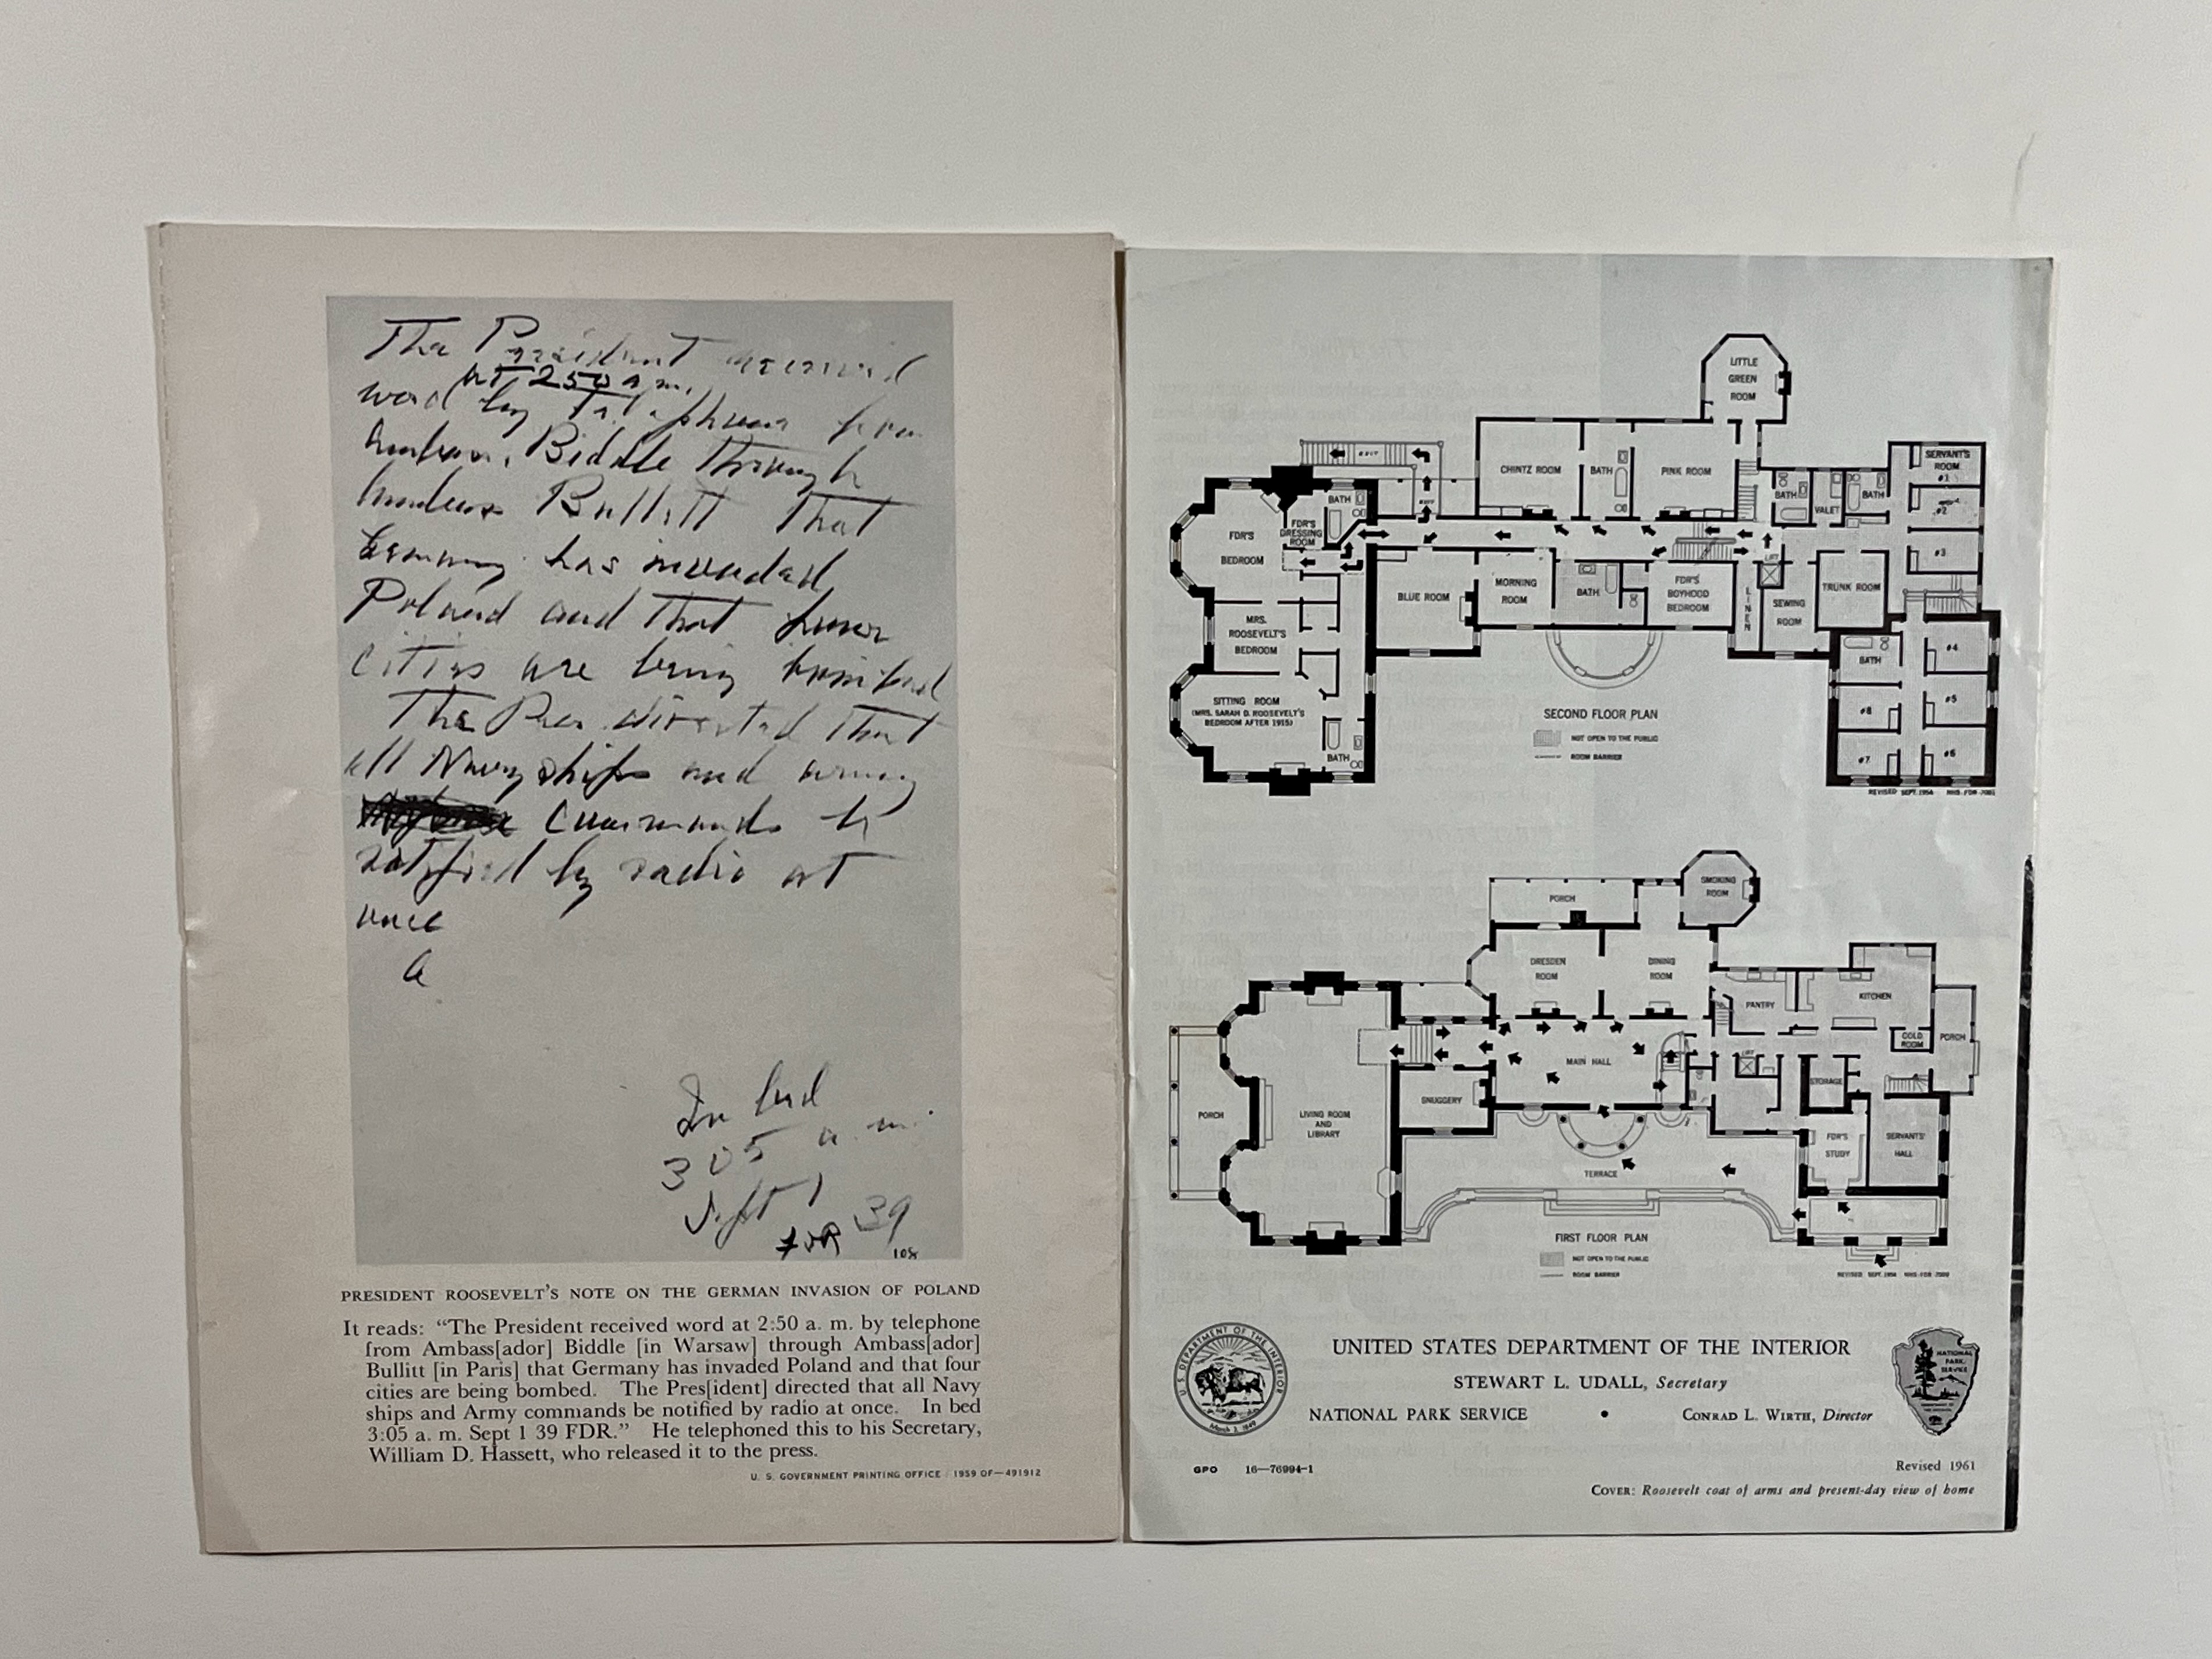 The President received
at 250 a.m.
word by telephone from
Ambass. Biddle through
Ambass Bullitt that
Germany has invaded
Poland and that four
cities are being bombed
The Pres. directed that
all Navy ships and army
commands be
notified by radio at
once
In bed
305 a.m.
Sept 1
39
FDR
108
PRESIDENT ROOSEVELT'S NOTE ON THE GERMAN INVASION OF POLAND
It reads: "The President received word at 2:50 a. m. by telephone
from Ambass[ador] Biddle [in Warsaw] through Ambass[ador]
Bullitt [in Paris] that Germany has invaded Poland and that four
cities are being bombed. The Pres[ident] directed that all Navy
ships and Army commands be notified by radio at once. In bed
3:05 a. m. Sept 1 39 FDR." He telephoned this to his Secretary,
William D. Hassett, who released it to the press.
U. S. GOVERNMENT PRINTING OFFICE : 1959 OF—491912
LITTLE
GREEN
ROOM
EXIT
CHINTZ ROOM
BATH
PINK ROOM
SERVANT'S
ROOM
#1
BATH
VALET
BATH
#2
BATH
EXIT
FDR'S
BEDROOM
FDR'S
DRESSING
ROOM
#3
LIFT
BLUE ROOM
MORNING
ROOM
BATH
FDR'S
BOYHOOD
BEDROOM
LINEN
SEWING
ROOM
TRUNK ROOM
MRS.
ROOSEVELT'S
BEDROOM
BATH
#4
SITTING ROOM
(MRS. SARAH D. ROOSEVELT'S
BEDROOM AFTER 1915)
BATH
#8
#5
#7
#6
SECOND FLOOR PLAN
NOT OPEN TO THE PUBLIC
ROOM BARRIER
REVISED SEPT. 1954 NHS-FDR-7001
PORCH
SMOKING
ROOM
DRESDEN
ROOM
DINING
ROOM
PANTRY
KITCHEN
COLD
ROOM
PORCH
MAIN HALL
LIFT
STORAGE
SNUGGERY
PORCH
LIVING ROOM
AND
LIBRARY
FDR'S
STUDY
SERVANTS'
HALL
TERRACE
FIRST FLOOR PLAN
NOT OPEN TO THE PUBLIC
ROOM BARRIER
REVISED SEPT. 1954 NHS-FDR-7002
U. S. DEPARTMENT OF THE INTERIOR
March 3, 1849
UNITED STATES DEPARTMENT OF THE INTERIOR
STEWART L. UDALL, Secretary
NATIONAL PARK SERVICE • CONRAD L. WIRTH, Director
NATIONAL
PARK
SERVICE
GPO 16—76994-1
Revised 1961
COVER: Roosevelt coat of arms and present-day view of home